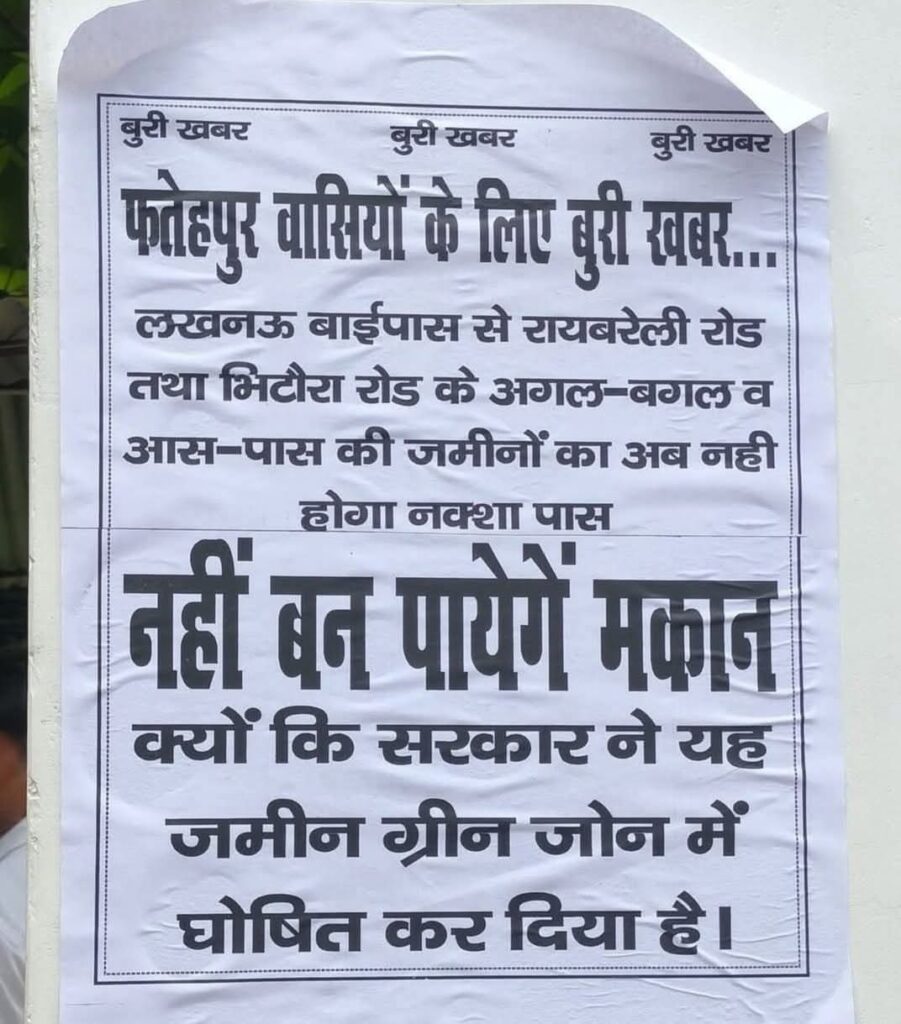 बुरी खबर बुरी खबर बुरी खबर
फतेहपुर वासियों के लिए बुरी खबर...
लखनऊ बाईपास से रायबरेली रोड
तथा भिटौरा रोड के अगल-बगल व
आस-पास की जमीनों का अब नही
होगा नक्शा पास
नहीं बन पायेगें मकान
क्यों कि सरकार ने यह
जमीन ग्रीन जोन में
घोषित कर दिया है।